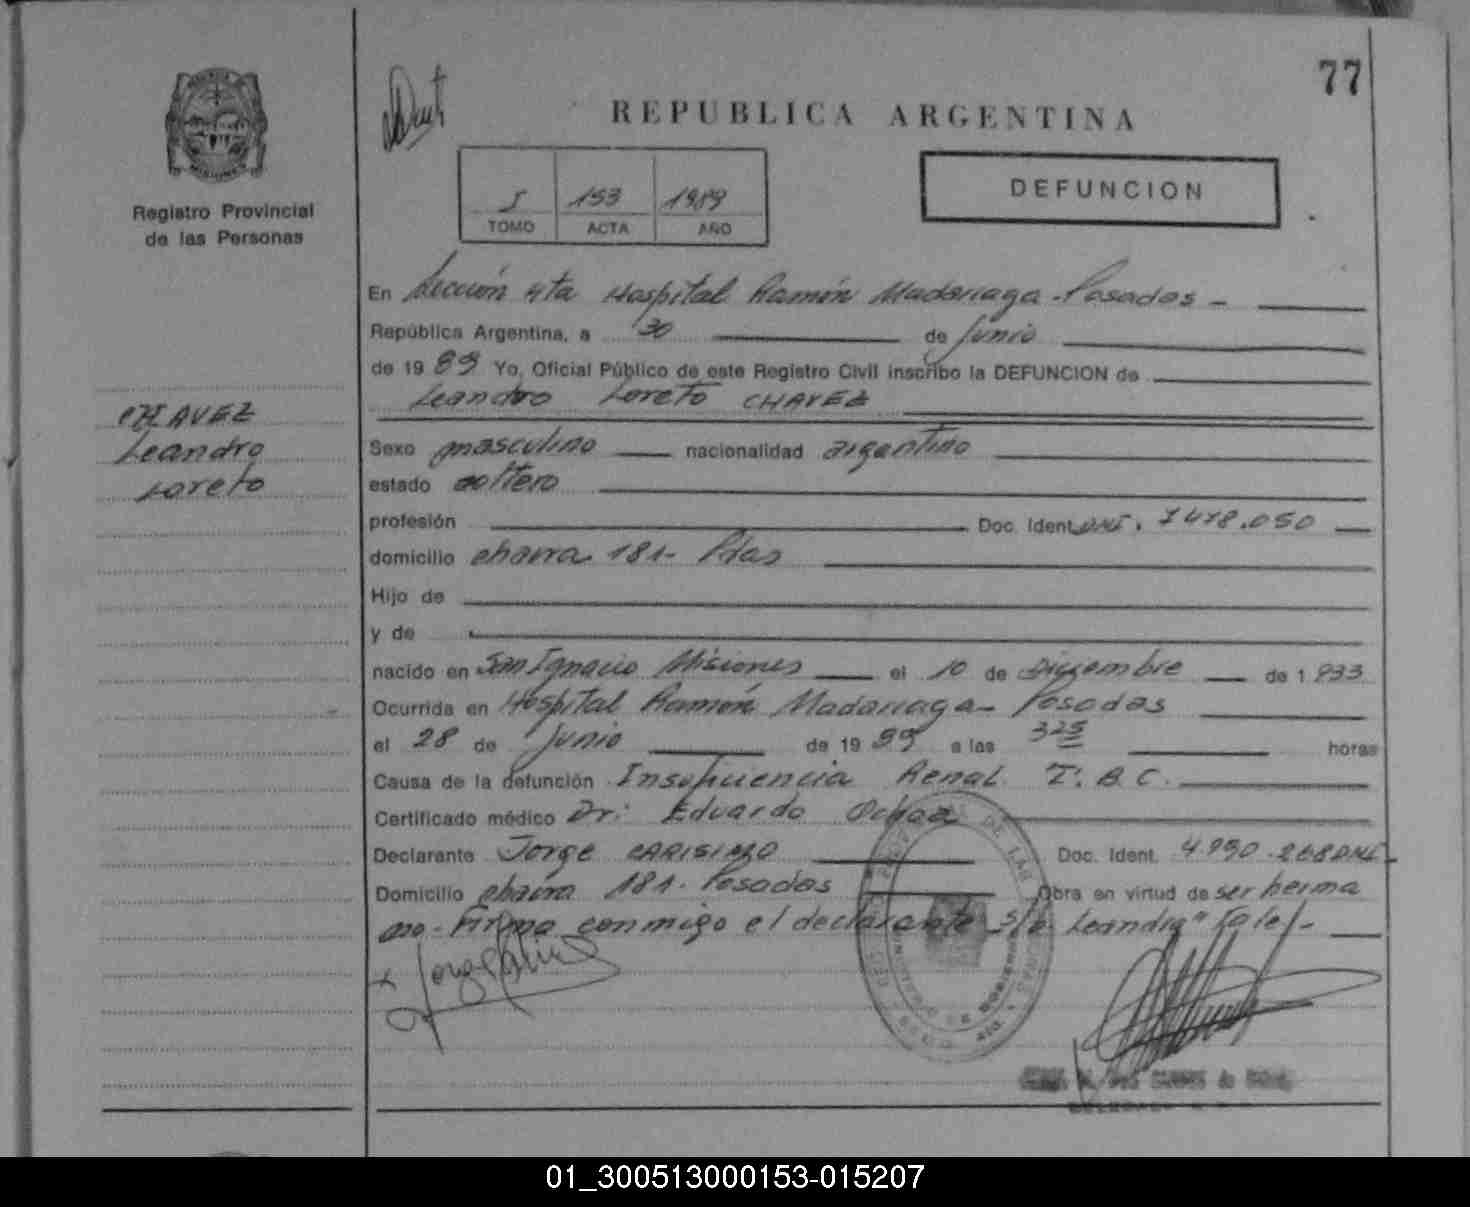 77
REPUBLICA ARGENTINA
Registro Provincial
de las Personas
I 153 1989
TOMO ACTA AÑO
DEFUNCION
En Sección 4ta Hospital Ramón Madariaga - Posadas -
República Argentina, a 30 de Junio
de 19 89 Yo, Oficial Público de este Registro Civil inscribo la DEFUNCION de
Leandro Loreto CHAVEZ
CHAVEZ
Leandro
Loreto
Sexo masculino nacionalidad argentino
estado soltero
profesión Doc. Ident. DNI. 7478.050
domicilio chavra 181- Pdas
Hijo de
y de
nacido en San Ignacio Misiones el 10 de Diciembre de 1 933
Ocurrida en Hospital Ramón Madariaga - Posadas
el 28 de Junio de 19 89 a las 325 horas
Causa de la defunción Insuficiencia Renal T.B.C.
Certificado médico Dr: Eduardo Ochoa
Declarante Jorge CARISIMO Doc. Ident. 4.990.268 DNI-
Domicilio chavra 181. Posadas Obra en virtud de ser herma
no - Firma conmigo el declarante S/r. Leandro" Vale/-
01_300513000153-015207